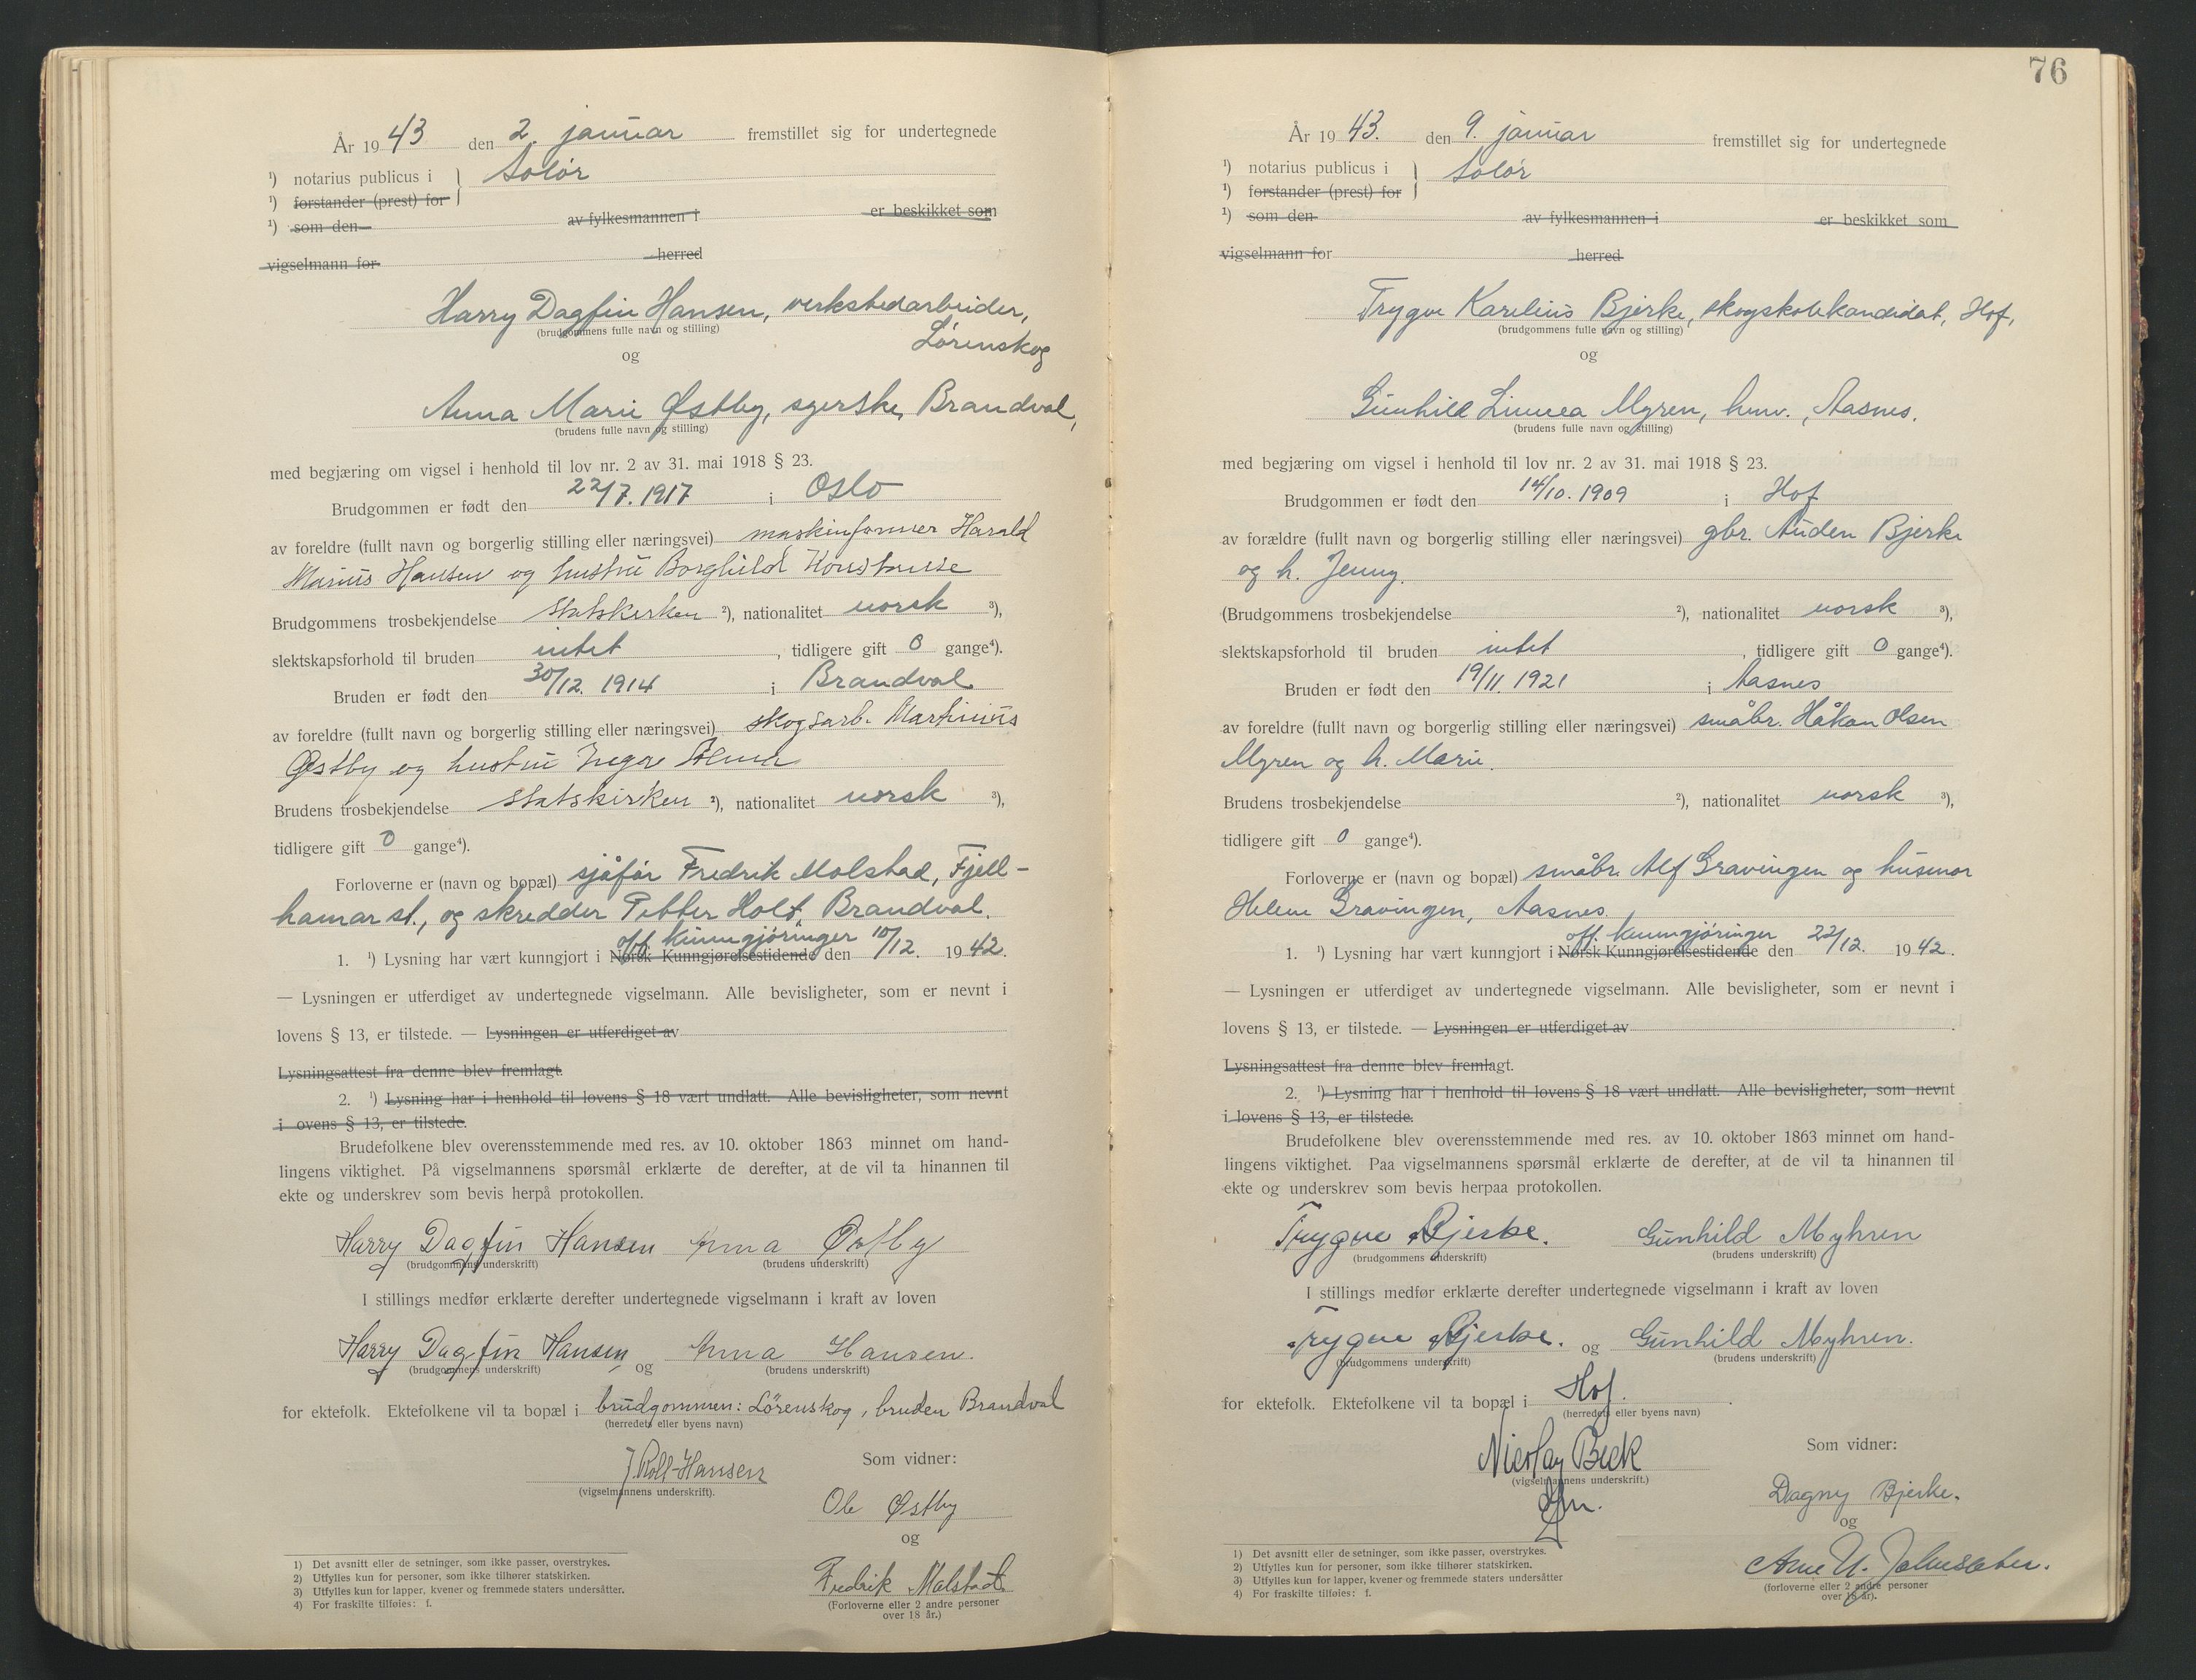 År 1943 den 2. januar fremstillet sig for undertegnede
¹) notarius publicus i } Solør
¹) forstander (prest) for
¹) som den av fylkesmannen i er beskikket som
vigselmann for herred
Harry Dagfin Hansen, verkstedarbeider,
(brudgommens fulle navn og stilling)
Lørenskog
og
Anna Marie Østby, syerske, Brandval,
(brudens fulle navn og stilling)
med begjæring om vigsel i henhold til lov nr. 2 av 31. mai 1918 § 23.
Brudgommen er født den 22/7. 1917 i Oslo
av foreldre (fullt navn og borgerlig stilling eller næringsvei) maskinformer Harald
Marius Hansen og hustru Borghild Konstanse
Brudgommens trosbekjendelse statskirken ²), nationalitet norsk ³),
slektskapsforhold til bruden intet, tidligere gift 0 gange⁴).
Bruden er født den 30/12. 1914 i Brandval
av foreldre (fullt navn og borgerlig stilling eller næringsvei) skogsarb. Martinius
Østby og hustru Inga
Brudens trosbekjendelse statskirken ²), nationalitet norsk ³),
tidligere gift 0 gange⁴).
Forloverne er (navn og bopæl) sjåfør Fredrik Molstad, Fjell-
hamar st., og skredder Petter Holt, Brandval.
off. kunngjøringer
1. ¹) Lysning har vært kunngjort i Norsk Kunngjørelsestidende den 10/12. 1942.
— Lysningen er utferdiget av undertegnede vigselmann. Alle bevisligheter, som er nevnt i
lovens § 13, er tilstede. — Lysningen er utferdiget av
Lysningsattest fra denne blev fremlagt.
2. ¹) Lysning har i henhold til lovens § 18 vært undlatt. Alle bevisligheter, som nevnt
i ovens § 13, er tilstede.
Brudefolkene blev overensstemmende med res. av 10. oktober 1863 minnet om hand-
lingens viktighet. På vigselmannens spørsmål erklærte de derefter, at de vil ta hinannen til
ekte og underskrev som bevis herpå protokollen.
Harry Dagfin Hansen Anna Østby
(brudgommens underskrift) (brudens underskrift)
I stillings medfør erklærte derefter undertegnede vigselmann i kraft av loven
Harry Dagfin Hansen og Anna Hansen.
(brudgommens underskrift) (brudens underskrift)
for ektefolk. Ektefolkene vil ta bopæl i brudgommen: Lörenskog, bruden Brandval
(herredets eller byens navn)
J. Roll-Hansen
(vigselmannens underskrift).
Som vidner:
Ole Østby
og
Fredrik Malstad
(Forloverne eller 2 andre personer
over 18 år.)
1) Det avsnitt eller de setninger, som ikke passer, overstrykes.
2) Utfylles kun for personer, som ikke tilhører statskirken.
3) Utfylles kun for lapper, kvener og fremmede staters undersåtter.
4) For fraskilte tilføies: f.
76
År 1943. den 9. januar fremstillet sig for undertegnede
¹) notarius publicus i } Solør
¹) forstander (prest) for
¹) som den av fylkesmannen i er beskikket som
vigselmann for herred
Trygve Karelius Bjerke, skogskolekandidat, Hof,
(brudgommens fulle navn og stilling)
og
Gunhild Linnea Myren, hmv., Aasnes.
(brudens fulle navn og stilling)
med begjæring om vigsel i henhold til lov nr. 2 av 31. mai 1918 § 23.
Brudgommen er født den 14/10. 1909 i Hof
av forældre (fullt navn og borgerlig stilling eller næringsvei) gbr. Auden Bjerke
og h. Jenny.
(Brudgommens trosbekjendelse ²), nationalitet norsk ³),
slektskapsforhold til bruden intet, tidligere gift 0 gange⁴).
Bruden er født den 19/11. 1921 i Aasnes
av foreldre (fullt navn og borgerlig stilling eller næringsvei) småbr. Håkan Olsen
Myren og h. Marie.
Brudens trosbekjendelse ²), nationalitet norsk ³),
tidligere gift 0 gange⁴).
Forloverne er (navn og bopæl) småbr. Alf Gravingen og husmor
Helene Gravingen, Aasnes.
off. kunngjøringer
1. ¹) Lysning har vært kunngjort i Norsk Kunngjørelsestidende den 22/12. 1942.
— Lysningen er utferdiget av undertegnede vigselmann. Alle bevisligheter, som er nevnt i
lovens § 13, er tilstede. — Lysningen er utferdiget av
Lysningsattest fra denne blev fremlagt.
2. ¹) Lysning har i henhold til lovens § 18 vært undlatt. Alle bevisligheter, som nevnt
i lovens § 13, er tilstede.
Brudefolkene blev overensstemmende med res. av 10. oktober 1863 minnet om hand-
lingens viktighet. Paa vigselmannens spørsmål erklærte de derefter, at de vil ta hinannen til
ekte og underskrev som bevis herpaa protokollen.
Trygve Bjerke. Gunhild Myhren
(brudgommens underskrift) (brudens underskrift)
I stillings medfør erklærte derefter undertegnede vigselmann i kraft av loven
Trygve Bjerke. og Gunhild Myhren.
(brudgommens underskrift) (brudens underskrift)
for ektefolk. Ektefolkene vil ta bopæl i Hof.
(herredets eller byens navn)
Nicolay Beck
(vigselmannens underskrift.)
Som vidner:
Dagny Bjerke.
og
Arne
(forloverne eller 2 andre personer
over 18 år).
1) Det avsnitt eller de setninger, som ikke passer, overstrykes.
2) Utfylles kun for personer, som ikke tilhører statskirken.
3) Utfylles kun for lapper, kvener og fremmede staters undersåtter
4) For fraskilte tilføies: f.